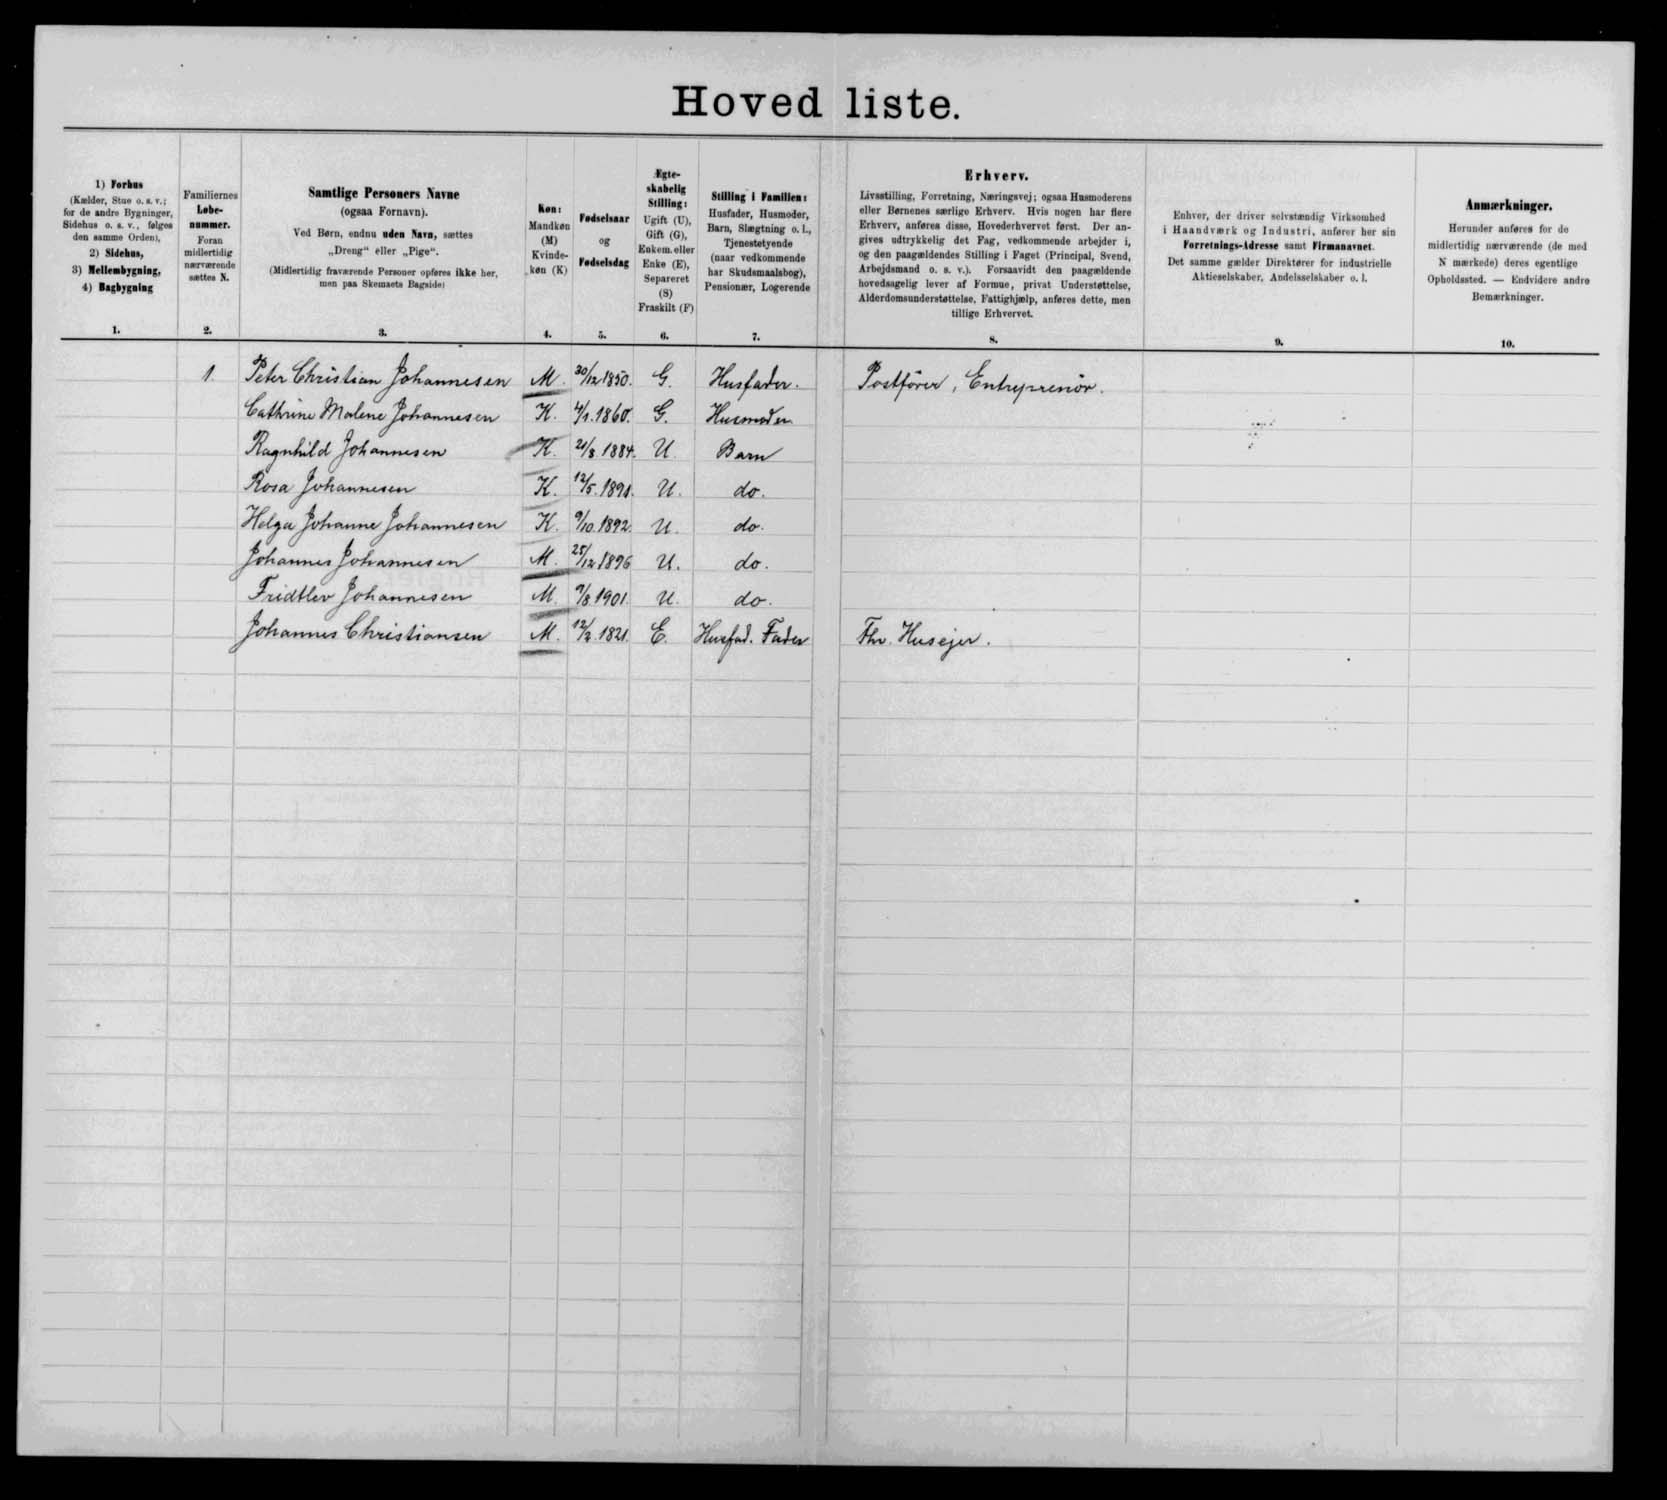 Hoved liste.
1) Forhus
(Kælder, Stue o. s. v.;
for de andre Bygninger,
Sidehus o. s. v., følges
den samme Orden),
2) Sidehus,
3) Mellembygning,
4) Bagbygning
1.
Familiernes
Løbe-
nummer.
Foran
midlertidig
nærværende
sættes N.
2.
Samtlige Personers Navne
(ogsaa Fornavn).
Ved Børn, endnu uden Navn, sættes
„Dreng“ eller „Pige“.
(Midlertidig fraværende Personer opføres ikke her,
men paa Skemaets Bagside)
3.
Køn:
Mandkøn
(M)
Kvinde-
køn (K)
4.
Fødselsaar
og
Fødselsdag
5.
Ægte-
skabelig
Stilling:
Ugift (U),
Gift (G),
Enkem. eller
Enke (E),
Separeret
(S)
Fraskilt (F)
6.
Stilling i Familien:
Husfader, Husmoder,
Barn, Slægtning o. l.,
Tjenestetyende
(naar vedkommende
har Skudsmaalsbog),
Pensionær, Logerende
7.
Erhverv.
Livsstilling, Forretning, Næringsvej; ogsaa Husmoderens
eller Børnenes særlige Erhverv. Hvis nogen har flere
Erhverv, anføres disse, Hovederhvervet først. Der an-
gives udtrykkelig det Fag, vedkommende arbejder i,
og den paagældendes Stilling i Faget (Principal, Svend,
Arbejdsmand o. s. v.). Forsaavidt den paagældende
hovedsagelig lever af Formue, privat Understøttelse,
Alderdomsunderstøttelse, Fattighjælp, anføres dette, men
tillige Erhvervet.
8.
Enhver, der driver selvstændig Virksomhed
i Haandværk og Industri, anfører her sin
Forretnings-Adresse samt Firmanavnet.
Det samme gælder Direktører for industrielle
Aktieselskaber, Andelsselskaber o. l.
9.
Anmærkninger.
Herunder anføres for de
midlertidig nærværende (de med
N mærkede) deres egentlige
Opholdssted. — Endvidere andre
Bemærkninger.
10.
1. Peter Christian Johannesen M. 30/12 1850. G. Husfader. Postfører, Entreprenør.
Cathrine Malene Johannesen K. 4/1. 1860. G. Husmoder.
Ragnhild Johannesen K. 21/8. 1884. U. Barn
Rosa Johannesen K. 12/5. 1891. U. do.
Helga Johanne Johannesen K. 9/10. 1892. U. do.
Johannes Johannesen M. 25/12 1896 U. do.
Fridtlev Johannesen M. 9/8 1901. U. do.
Johannes Christiansen M. 12/2. 1821. E. Husfad. Fader Fhv. Husejer.